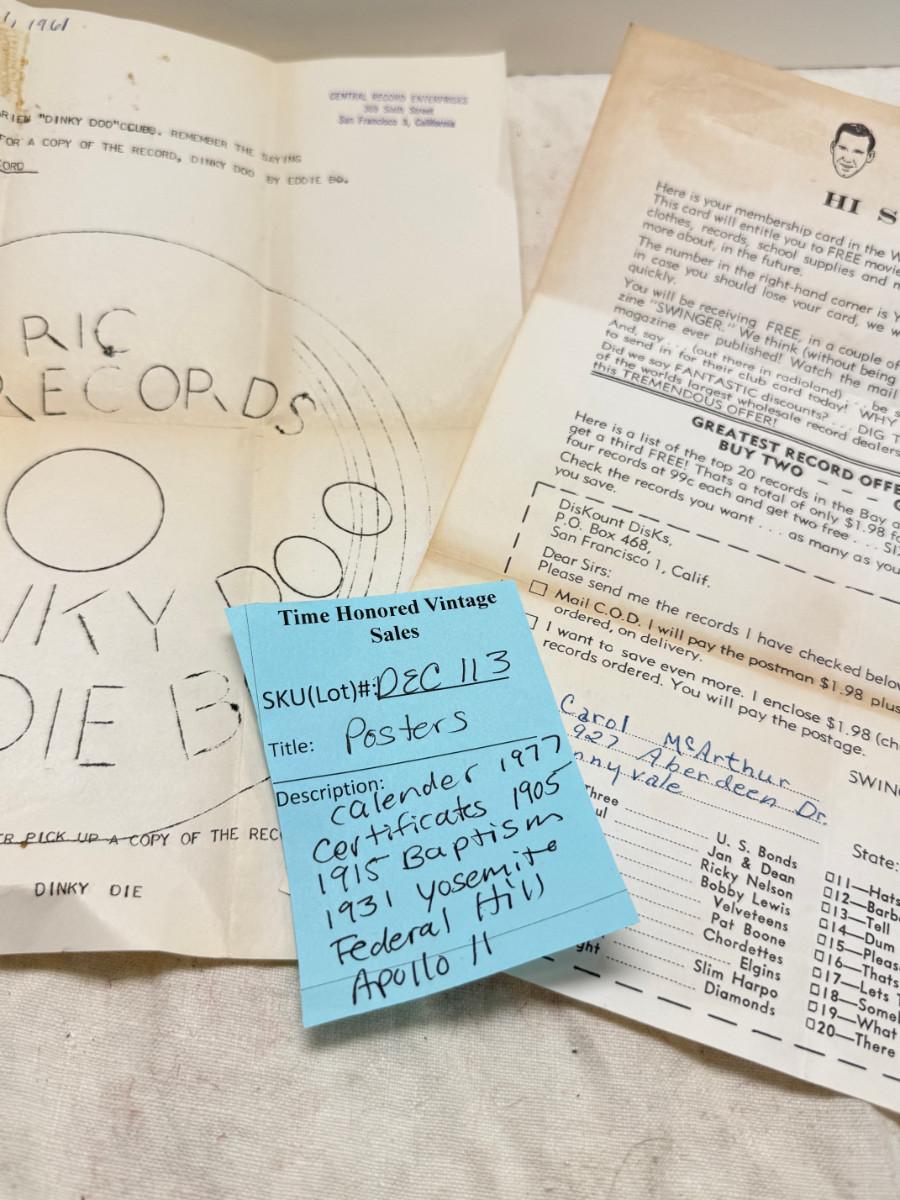 1, 1961
CENTRAL RECORD ENTERPRISES
San Francisco 3, California
"DINKY DOO"CCLUBS. REMEMBER THE SAYING
FOR A COPY OF THE RECORD, DINKY DOO BY EDDIE BO.
ORD
RIC
RECORDS
NKY DOO
DIE B
R PICK UP A COPY OF THE REC
DINKY DIE
HI S
Here is your membership card in the W
This card will entitle you to FREE movie
clothes, records, school supplies and m
more about, in the future.
The number in the right-hand corner is Y
in case you should lose your card, we w
quickly.
You will be receiving FREE, in a couple of
zine "SWINGER." We think (without being
magazine ever published! Watch the mail
And, say . . . (out there in radioland) . . . be s
to send in for their club card today! WHY
Did we say FANTASTIC discounts? . . . DIG T
of the worlds largest wholesale record dealers
this TREMENDOUS OFFER!
GREATEST RECORD OFFE
BUY TWO - - - G
Here is a list of the top 20 records in the Bay a
get a third FREE! Thats a total of only $1.98 fo
four records at 99c each and get two free . . . SI
Check the records you want . . . as many as you
you save.
DisKount DisKs,
P.O. Box 468,
San Francisco 1, Calif.
Dear Sirs:
Please send me the records I have checked below
Mail C.O.D. I will pay the postman $1.98 plus
ordered, on delivery.
I want to save even more. I enclose $1.98 (ch
records ordered. You will pay the postage.
Carol McArthur
927 Aberdeen Dr.
nnyvale
SWING
State:
Three
ul
ght
U. S. Bonds
Jan & Dean
Ricky Nelson
Bobby Lewis
Velveteens
Pat Boone
Chordettes
Elgins
Slim Harpo
Diamonds
11—Hats
12—Barb
13—Tell
14—Dum
15—Pleas
16—Thats
17—Lets T
18—Some
19—What
20—There
Time Honored Vintage
Sales
SKU(Lot)#: DEC 113
Title: Posters
Description:
calender 1977
certificates 1905
1915 Baptism
1931 Yosemite
Federal Hill
Apollo 11